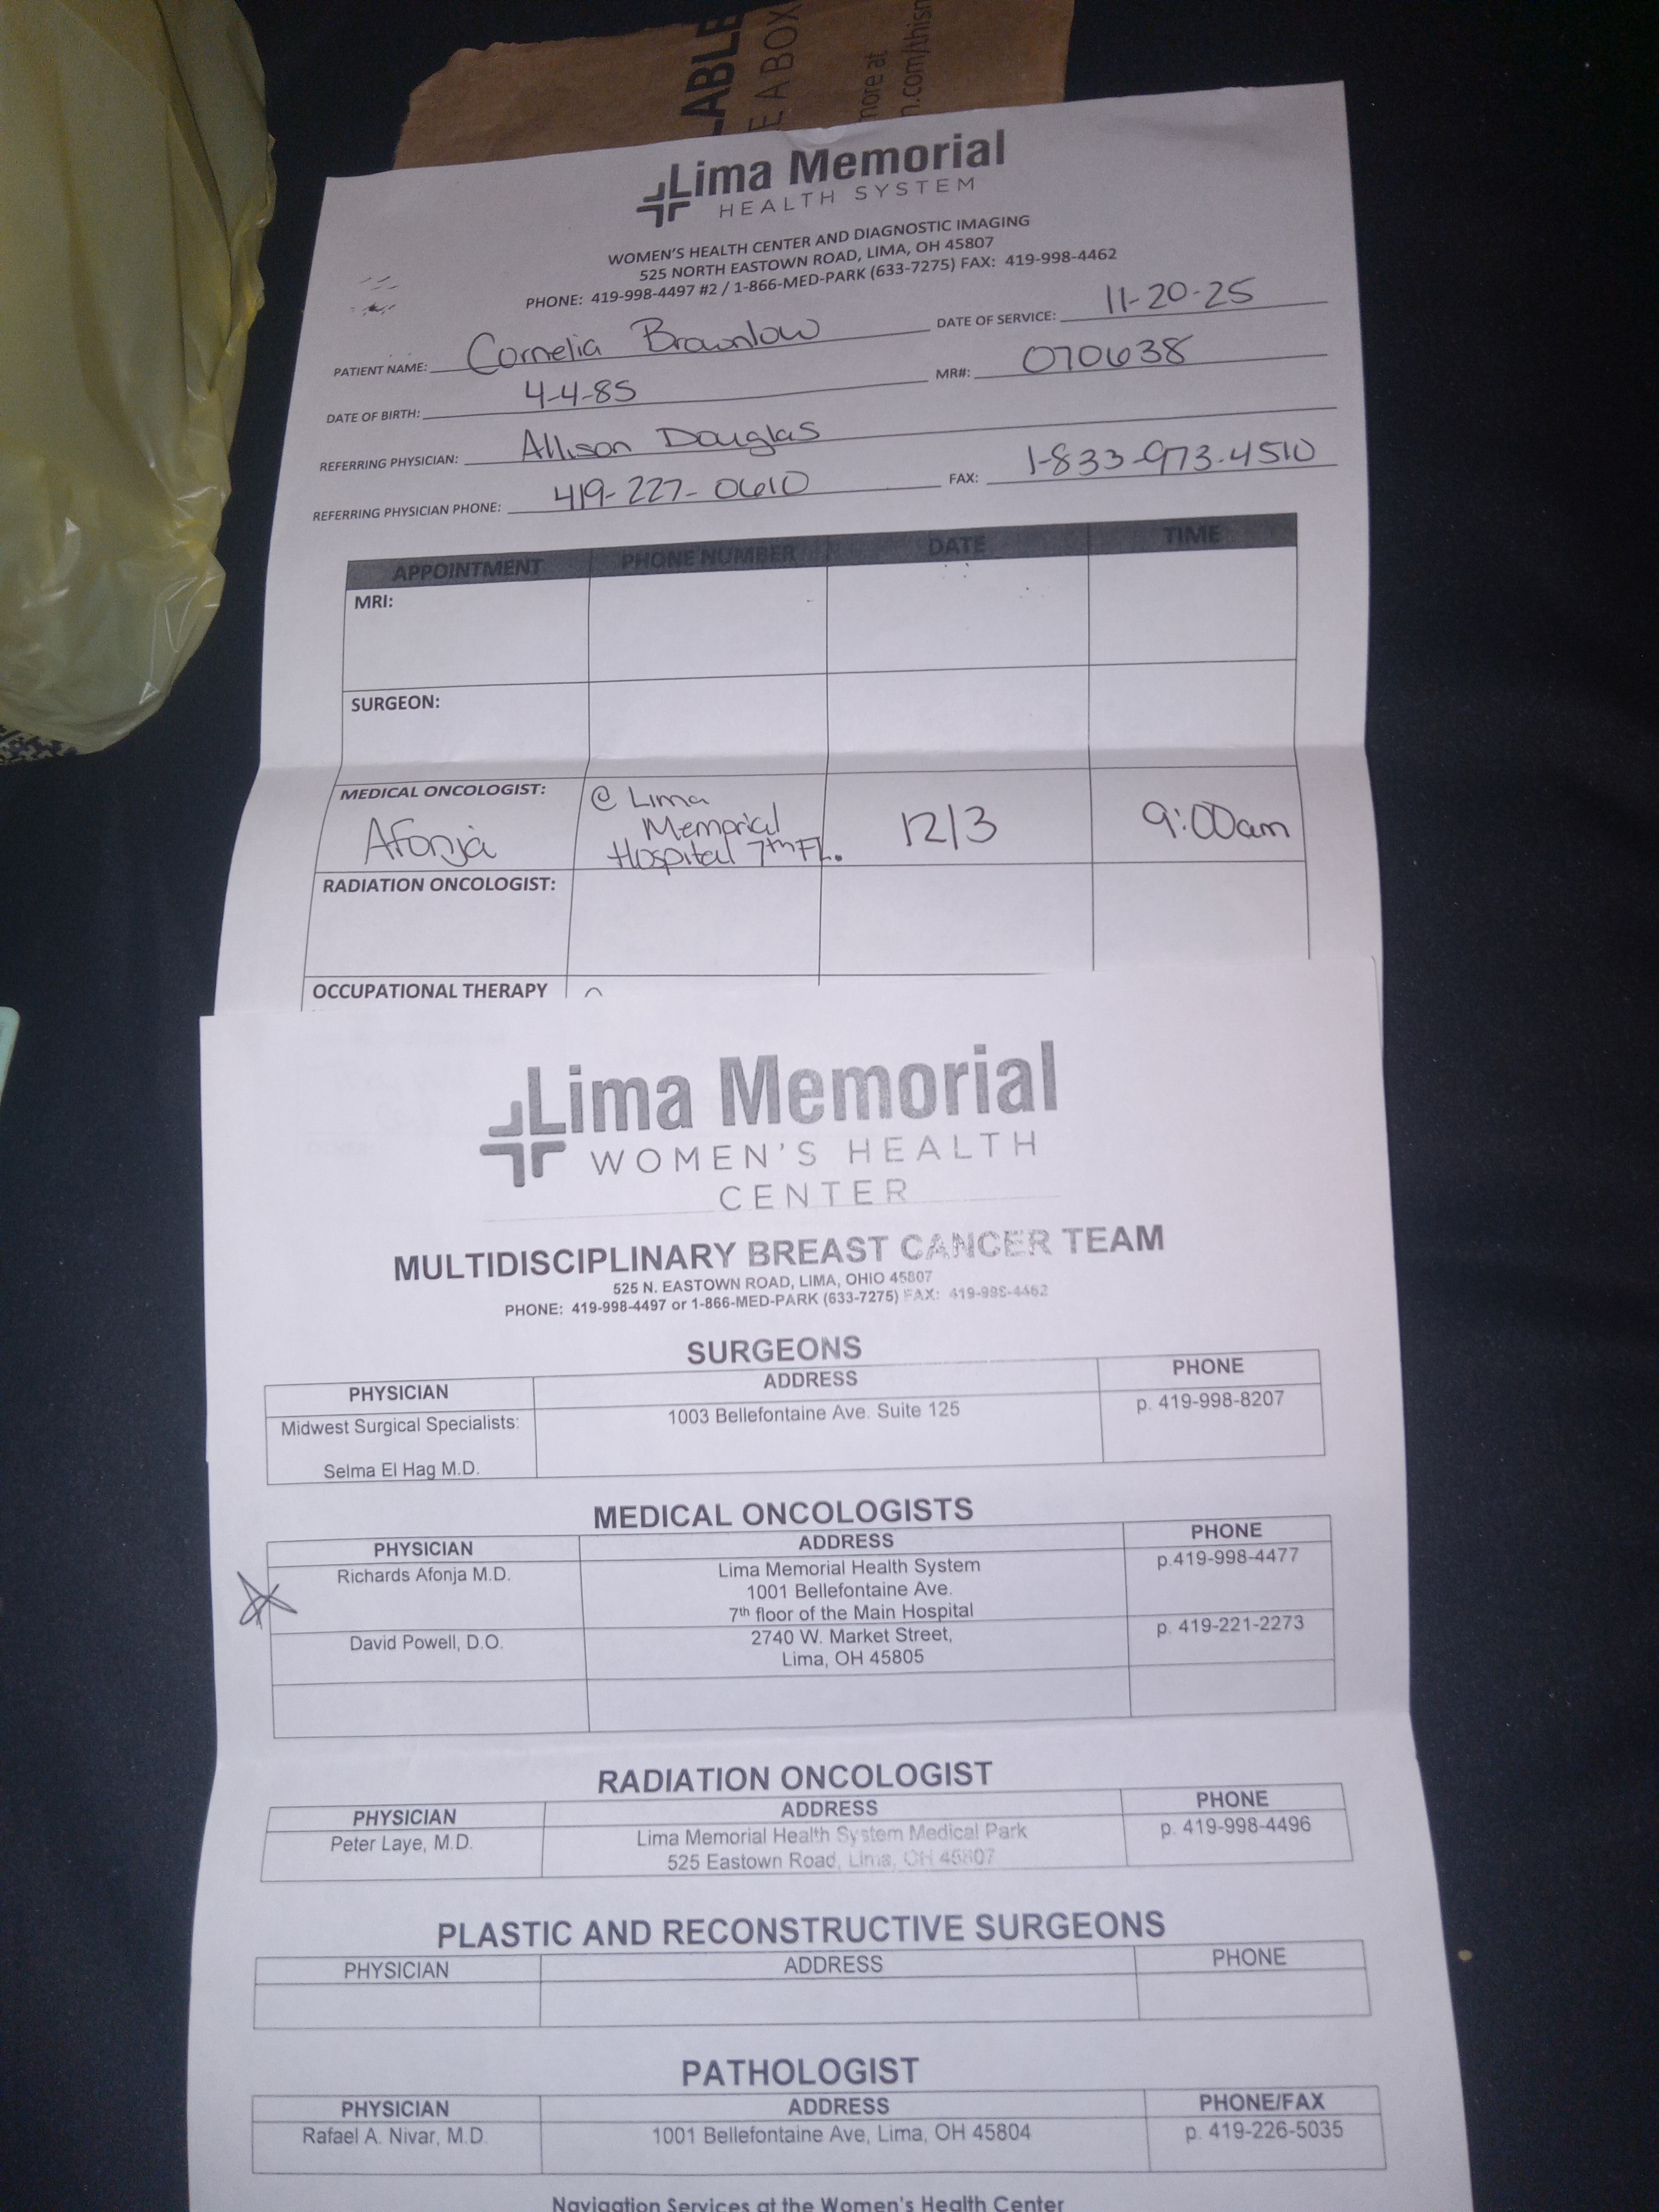 LABLE
E A BOX
more at
n.com/thisn
Lima Memorial
HEALTH SYSTEM
WOMEN'S HEALTH CENTER AND DIAGNOSTIC IMAGING
525 NORTH EASTOWN ROAD, LIMA, OH 45807
PHONE: 419-998-4497 #2 / 1-866-MED-PARK (633-7275) FAX: 419-998-4462
PATIENT NAME: Cornelia Brownlow DATE OF SERVICE: 11-20-25
DATE OF BIRTH: 4-4-85 MR#: 070638
REFERRING PHYSICIAN: Allison Douglas
REFERRING PHYSICIAN PHONE: 419-227-0610 FAX: 1-833-973-4510
APPOINTMENT PHONE NUMBER DATE TIME
MRI:
SURGEON:
MEDICAL ONCOLOGIST: @ Lima
Afonja Memorial 12/3 9:00am
Hospital 7th FL.
RADIATION ONCOLOGIST:
OCCUPATIONAL THERAPY
Lima Memorial
WOMEN'S HEALTH
CENTER
MULTIDISCIPLINARY BREAST CANCER TEAM
525 N. EASTOWN ROAD, LIMA, OHIO 45807
PHONE: 419-998-4497 or 1-866-MED-PARK (633-7275) FAX: 419-998-4462
SURGEONS
PHYSICIAN ADDRESS PHONE
Midwest Surgical Specialists: 1003 Bellefontaine Ave. Suite 125 p. 419-998-8207
Selma El Hag M.D.
MEDICAL ONCOLOGISTS
PHYSICIAN ADDRESS PHONE
Richards Afonja M.D. Lima Memorial Health System p.419-998-4477
1001 Bellefontaine Ave.
7th floor of the Main Hospital
David Powell, D.O. 2740 W. Market Street, p. 419-221-2273
Lima, OH 45805
RADIATION ONCOLOGIST
PHYSICIAN ADDRESS PHONE
Peter Laye, M.D. Lima Memorial Health System Medical Park p. 419-998-4496
525 Eastown Road, Lima, OH 45807
PLASTIC AND RECONSTRUCTIVE SURGEONS
PHYSICIAN ADDRESS PHONE
PATHOLOGIST
PHYSICIAN ADDRESS PHONE/FAX
Rafael A. Nivar, M.D. 1001 Bellefontaine Ave, Lima, OH 45804 p. 419-226-5035
Navigation Services at the Women's Health Center